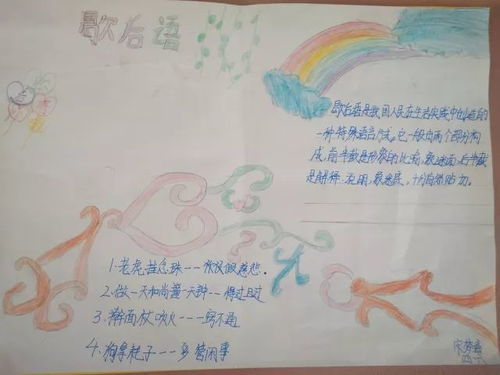 歇后语
歇后语是我国人民在生活实践中创造的
一种特殊语言形式。它一般由两个部分构
成,前半截是形象的比喻,象迷面,后半截
是解释、说明,象迷底,十分自然贴切。
1.老虎挂念珠---假假做慈悲.
2.做一天和尚撞一天钟--得过且过
3.擀面杖吹火---一窍不通
4.狗拿耗子---多管闲事